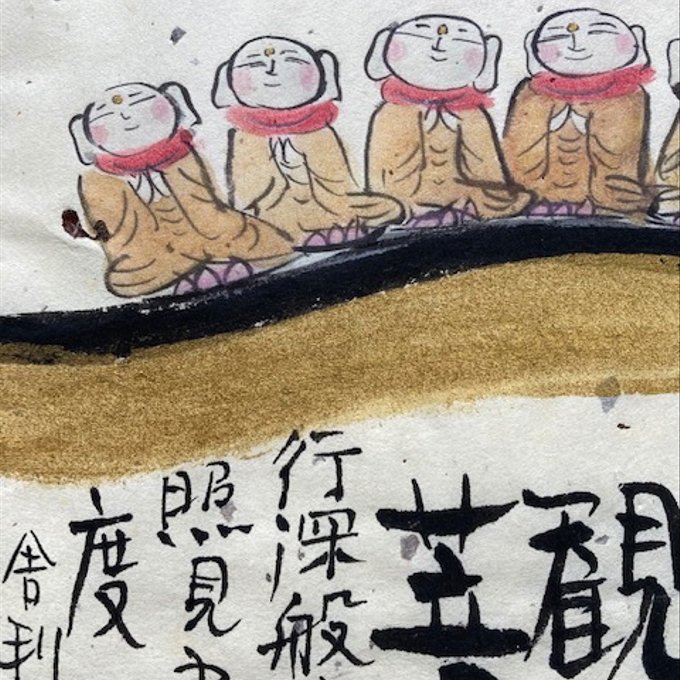 観
菩
行深般
照見
度
舎利